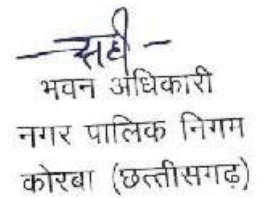 -सही-
भवन अधिकारी
नगर पालिक निगम
कोरबा (छत्तीसगढ़)